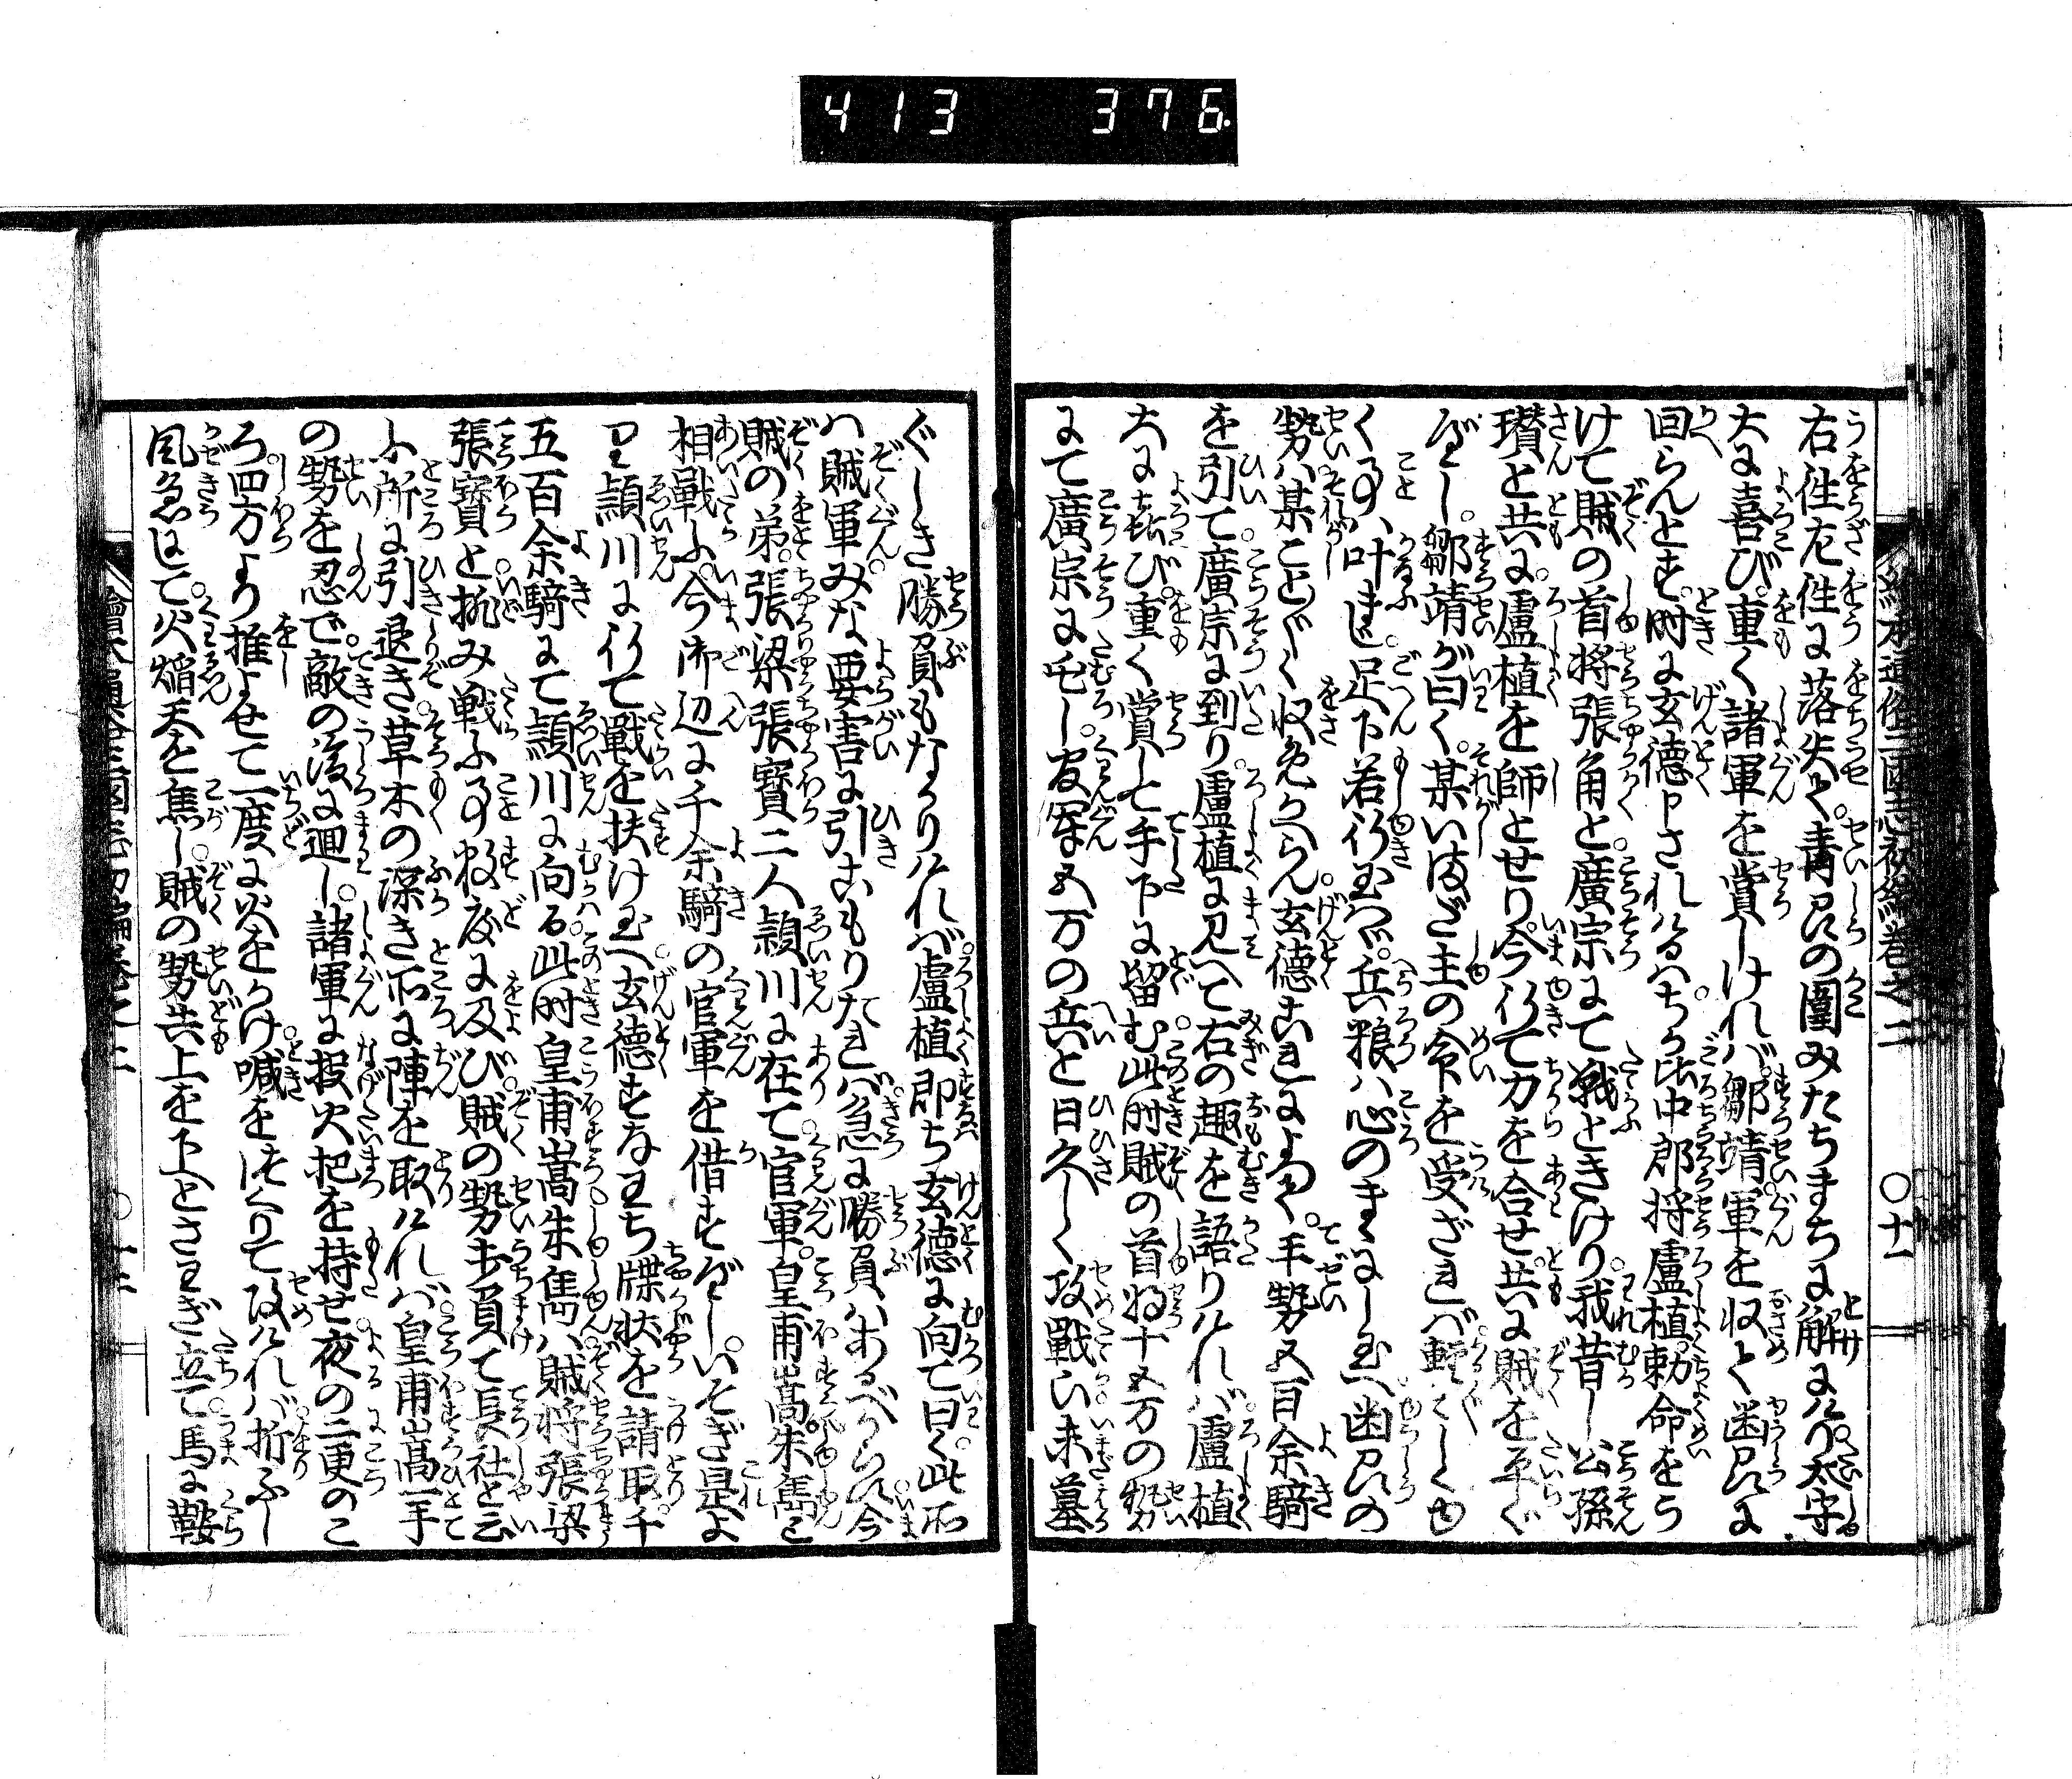 413 376
繪本通俗三國志初編卷之二 〇十一
右徃左徃に落失て。青州の圍みたちまちに解にけり。太守
大に喜び。重く諸軍を賞しければ。鄒靖軍を収て幽州に
回らんとす。時に玄德申されけるは。ちか比中郎将盧植勅命をう
けて賊の首将張角と廣宗にて戦ときけり。我昔し公孫
瓚と共に。盧植を師とせり。今行て力を合せ。共に賊を平ぐ
べし。鄒靖が曰く。某いまだ主の命を受ざれば。軽〻しくゆ
く事叶まじ。足下若行玉はゞ。兵粮は心のまゝにし玉へ。幽州の
勢は某こと〴〵く収め返らん。玄德これによつて。手勢五百余騎
を引て。廣宗に到り。盧植に見へて右の趣を語りければ。盧植
大に喜び。重く賞して手下に留む。此時賊の首将十五万の勢
にて廣宗に屯し。官軍五万の兵と日久しく攻戦ひ。未墓
〴〵しき勝負もなかりければ。盧植即ち玄德に向て曰く。此所
は賊軍みな要害に引こもりたれば。急に勝負はあるべからず。今
賊の弟。張梁張寶二人。頴川に在て。官軍。皇甫嵩。朱雋と
相戦ふ。今御辺に千余騎の官軍を借すべし。いそぎ是よ
り頴川に行て戰を扶け玉へ。玄德すなわち牒状を請取。千
五百余騎にて頴川に向る。此時皇甫嵩。朱雋は。賊将張梁
張寶と挑み戦ふ事数度に及び。賊の勢打負て長社と云
ふ所に引退き。草木の深き所に陣を取ければ。皇甫嵩一手
の勢を忍で。敵の後に廻し。諸軍に投火把を持せ。夜の二更のこ
ろ。四方より推よせて一度に火をかけ。喊をつくりて攻ければ。折ふし
風急にて。火焔天を焦し。賊の勢共上を下へとさわぎ立て。馬に鞍
繪本通俗三國志初編卷之二 〇十二